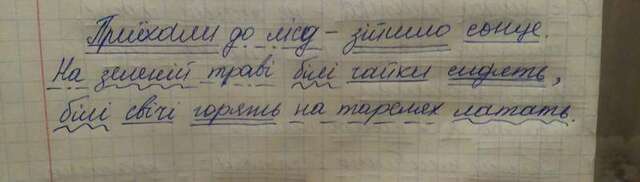 Приїхали до лісу - зійшло сонце.
На зеленій траві білі чайки сидять,
білі свічі горять на тарелях латать.